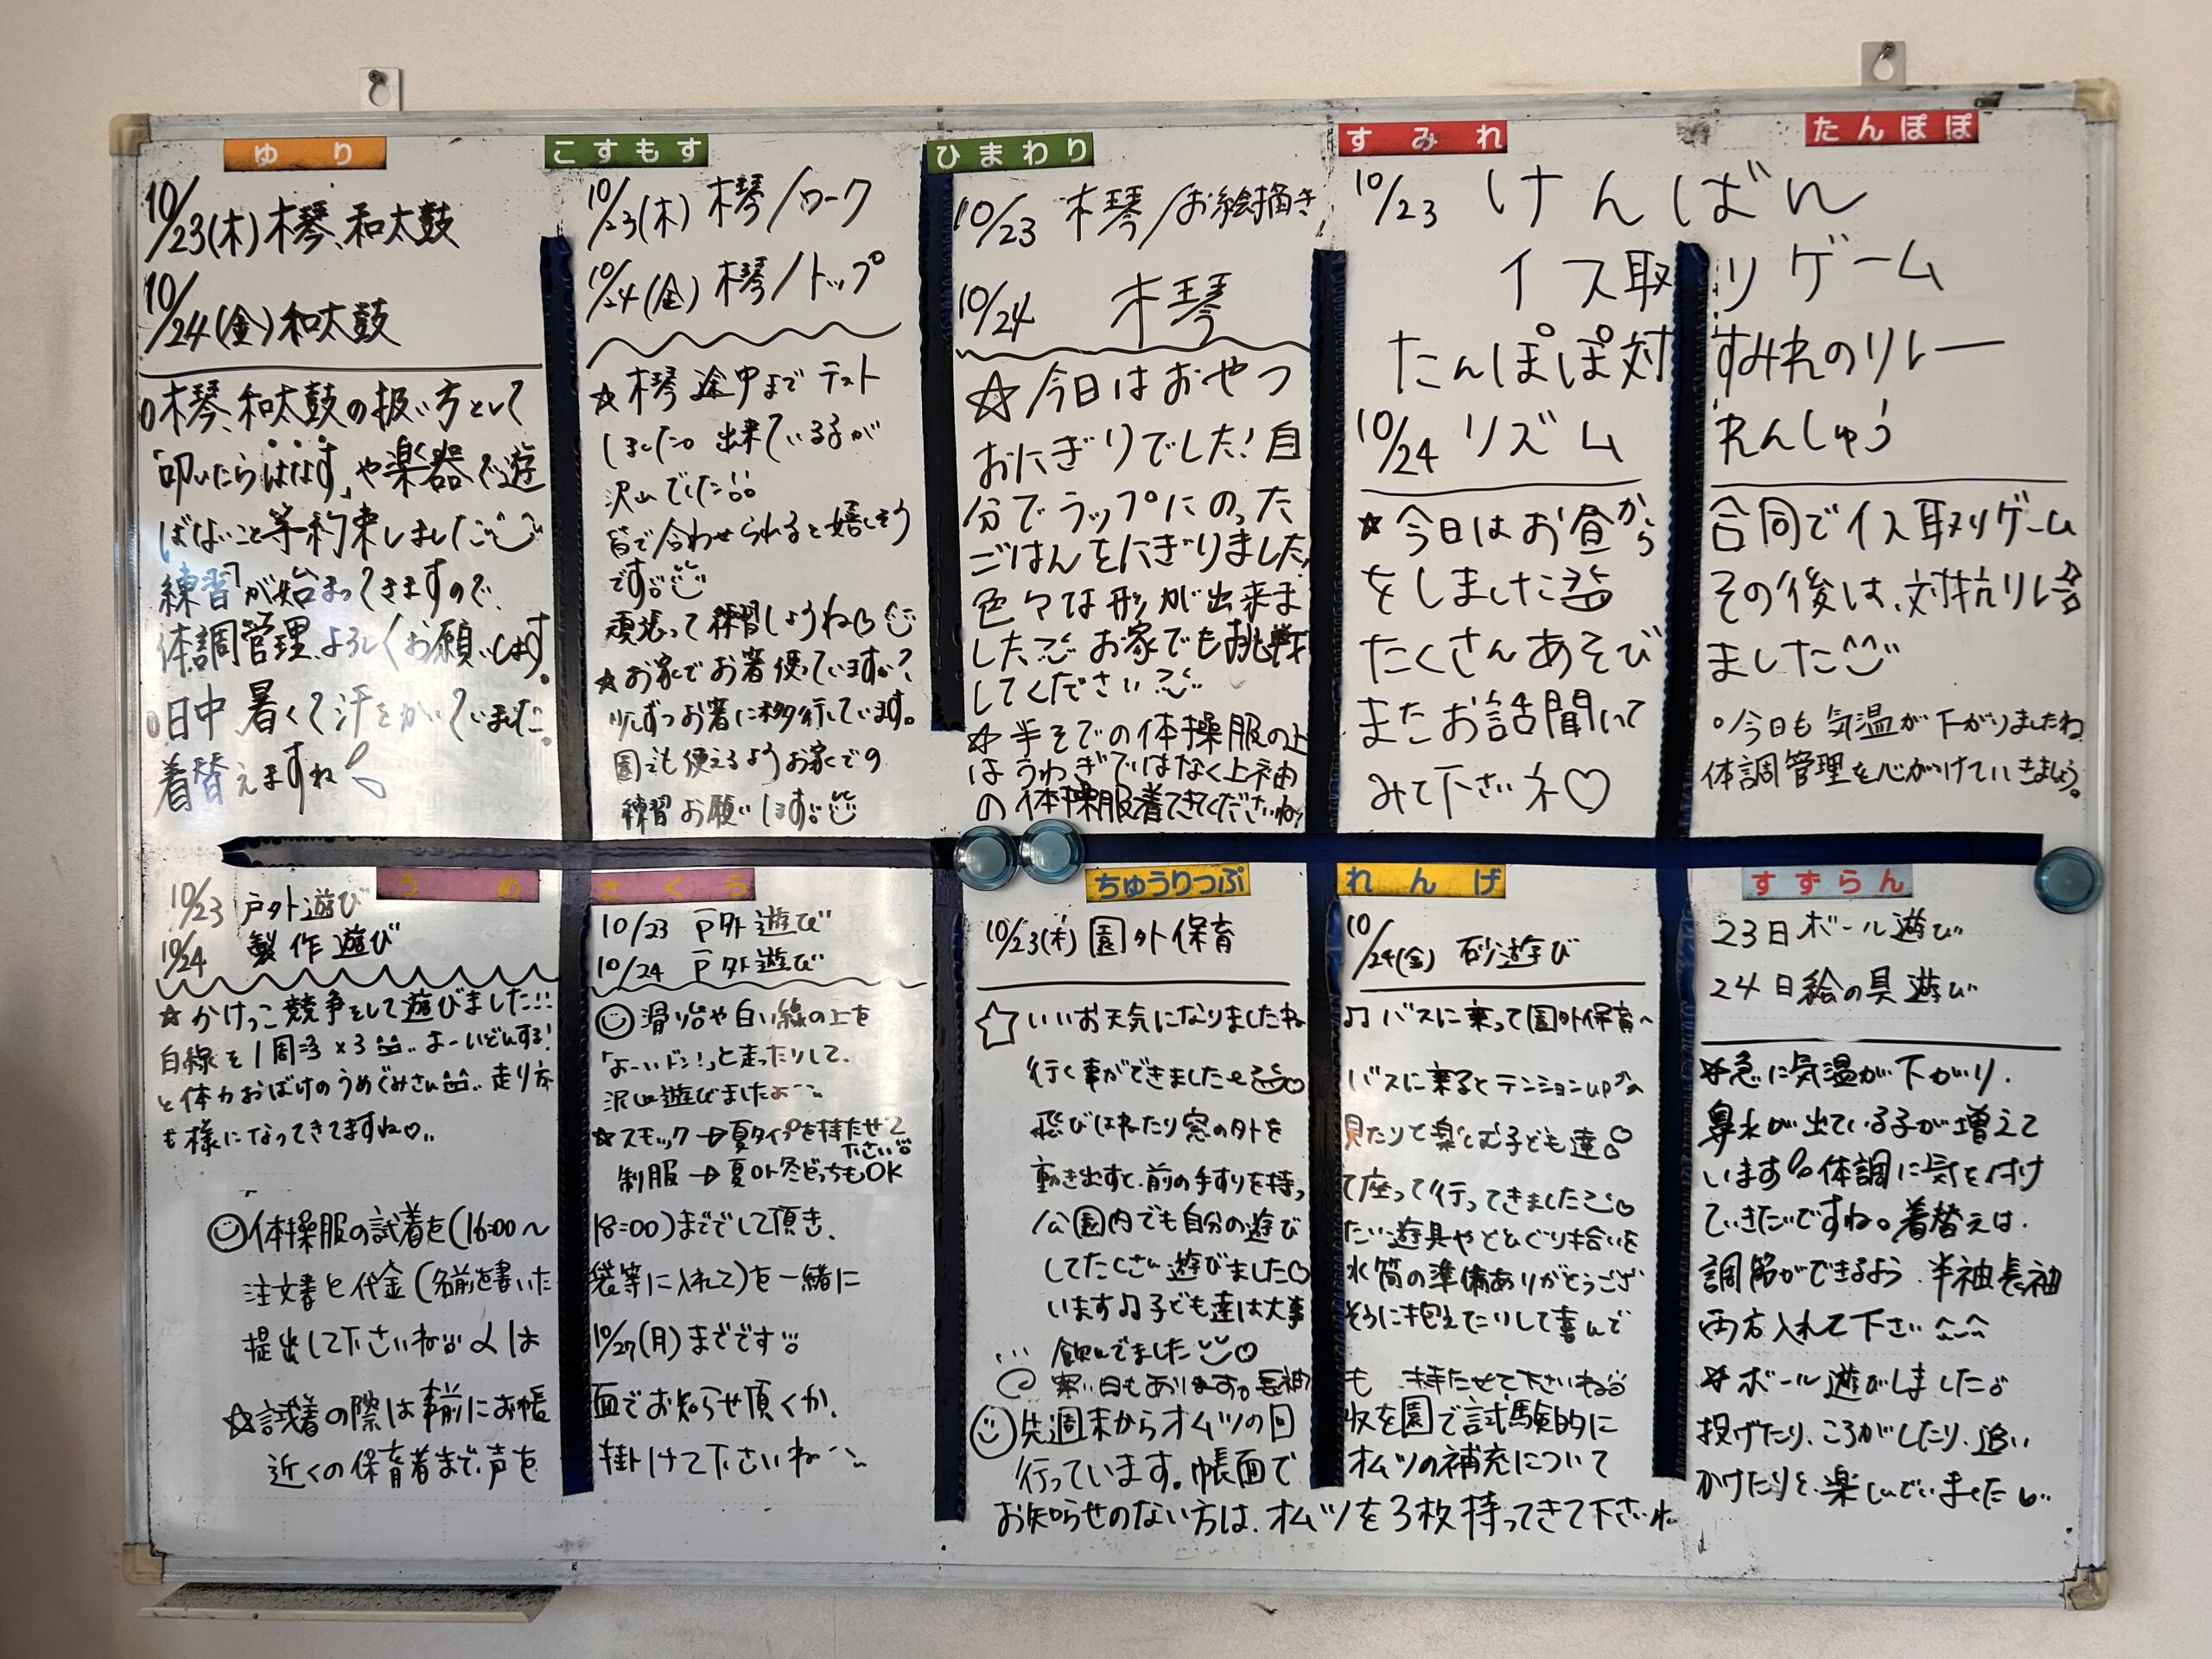 ゆり
10/23(木) 木琴、和太鼓
10/24(金) 和太鼓
○木琴、和太鼓の扱い方として
「叩いたらはなす」や楽器で遊
ばないこと等約束しました
練習が始まってきますので、
体調管理、よろしくお願いします。
○日中暑くて汗をかいていました。
着替えますね!
こすもす
10/23(木) 木琴/ワーク
10/24(金) 木琴/トップ
☆木琴途中までテスト
しました。出来ている子が
沢山でした
皆で合わせられると嬉しそう
です。
頑張って練習しようね
☆お家でお箸使っていますか?
少しずつお箸に移行しています。
園でも使えるようお家での
練習お願いします。
ひまわり
10/23 木琴/お絵描き
10/24 木琴
☆今日はおやつ
おにぎりでした!自
分でラップにのった
ごはんをにぎりました!
色々な形が出来ま
した お家でも挑戦
してください
☆半そでの体操服の上
はうわぎではなく上袖
の体操服着てきてくださいね
すみれ
たんぽぽ
10/23 けんばん
イス取りゲーム
たんぽぽ対すみれのリレー
10/24 リズム れんしゅう
☆今日はお昼から合同でイス取りゲーム
をしました その後は、対抗リレー
たくさんあそびました
またお話聞いて
みて下さいネ♡
○今日も気温が下がりましたね
体調管理を心がけていきましょう。
うめ
10/23 戸外遊び
10/24 製作遊び
☆かけっこ競争をして遊びました!!
白線を1周 ×3 よーいどんする!
と体力おばけのうめぐみさん 走り方
も様になってきてますね♡
さくら
10/23 戸外遊び
10/24 戸外遊び
滑り台や白い線の上を
「よーいドン!」と走ったりして、
沢山遊びましたよ
☆スモック→夏タイプを持たせて
下さい
制服→夏or冬どっちもOK
体操服の試着を(16:00〜18:00)までで して頂き、
注文書と代金(名前を書いた袋等に入れて)を一緒に
提出して下さいね 〆は10/27(月)までです
☆試着の際は事前にお帳面でお知らせ頂くか、
近くの保育者まで声を掛けて下さいね
ちゅうりっぷ
れんげ
10/23(木) 園外保育
10/24(金) 砂遊び
☆いいお天気になりましたね♫バスに乗って園外保育へ
行く事ができました バスに乗るとテンションup
飛びはねたり窓の外を見たりと楽しむ子ども達
動き出すと、前の手すりを持って座って行ってきました
公園内でも自分の遊びたい遊具やどんぐり拾いを
してたくさん遊びました 水筒の準備ありがとうござ
います♫子ども達は大事そうに抱えたりして喜んで
飲んでました♡
寒い日もあります。長袖も 持たせて下さいね
先週末からオムツの回収を園で試験的に
行っています。帳面でオムツの補充について
お知らせのない方は、オムツを3枚持ってきて下さいね
すずらん
23日 ボール遊び
24日 絵の具遊び
☆急に気温が下がり、
鼻水が出ている子が増えて
います。体調に気を付け
ていきたいですね。着替えは、
調節ができるよう、半袖長袖
両方入れて下さい
☆ボール遊びしました
投げたり、ころがしたり、追い
かけたりと、楽しんでいました